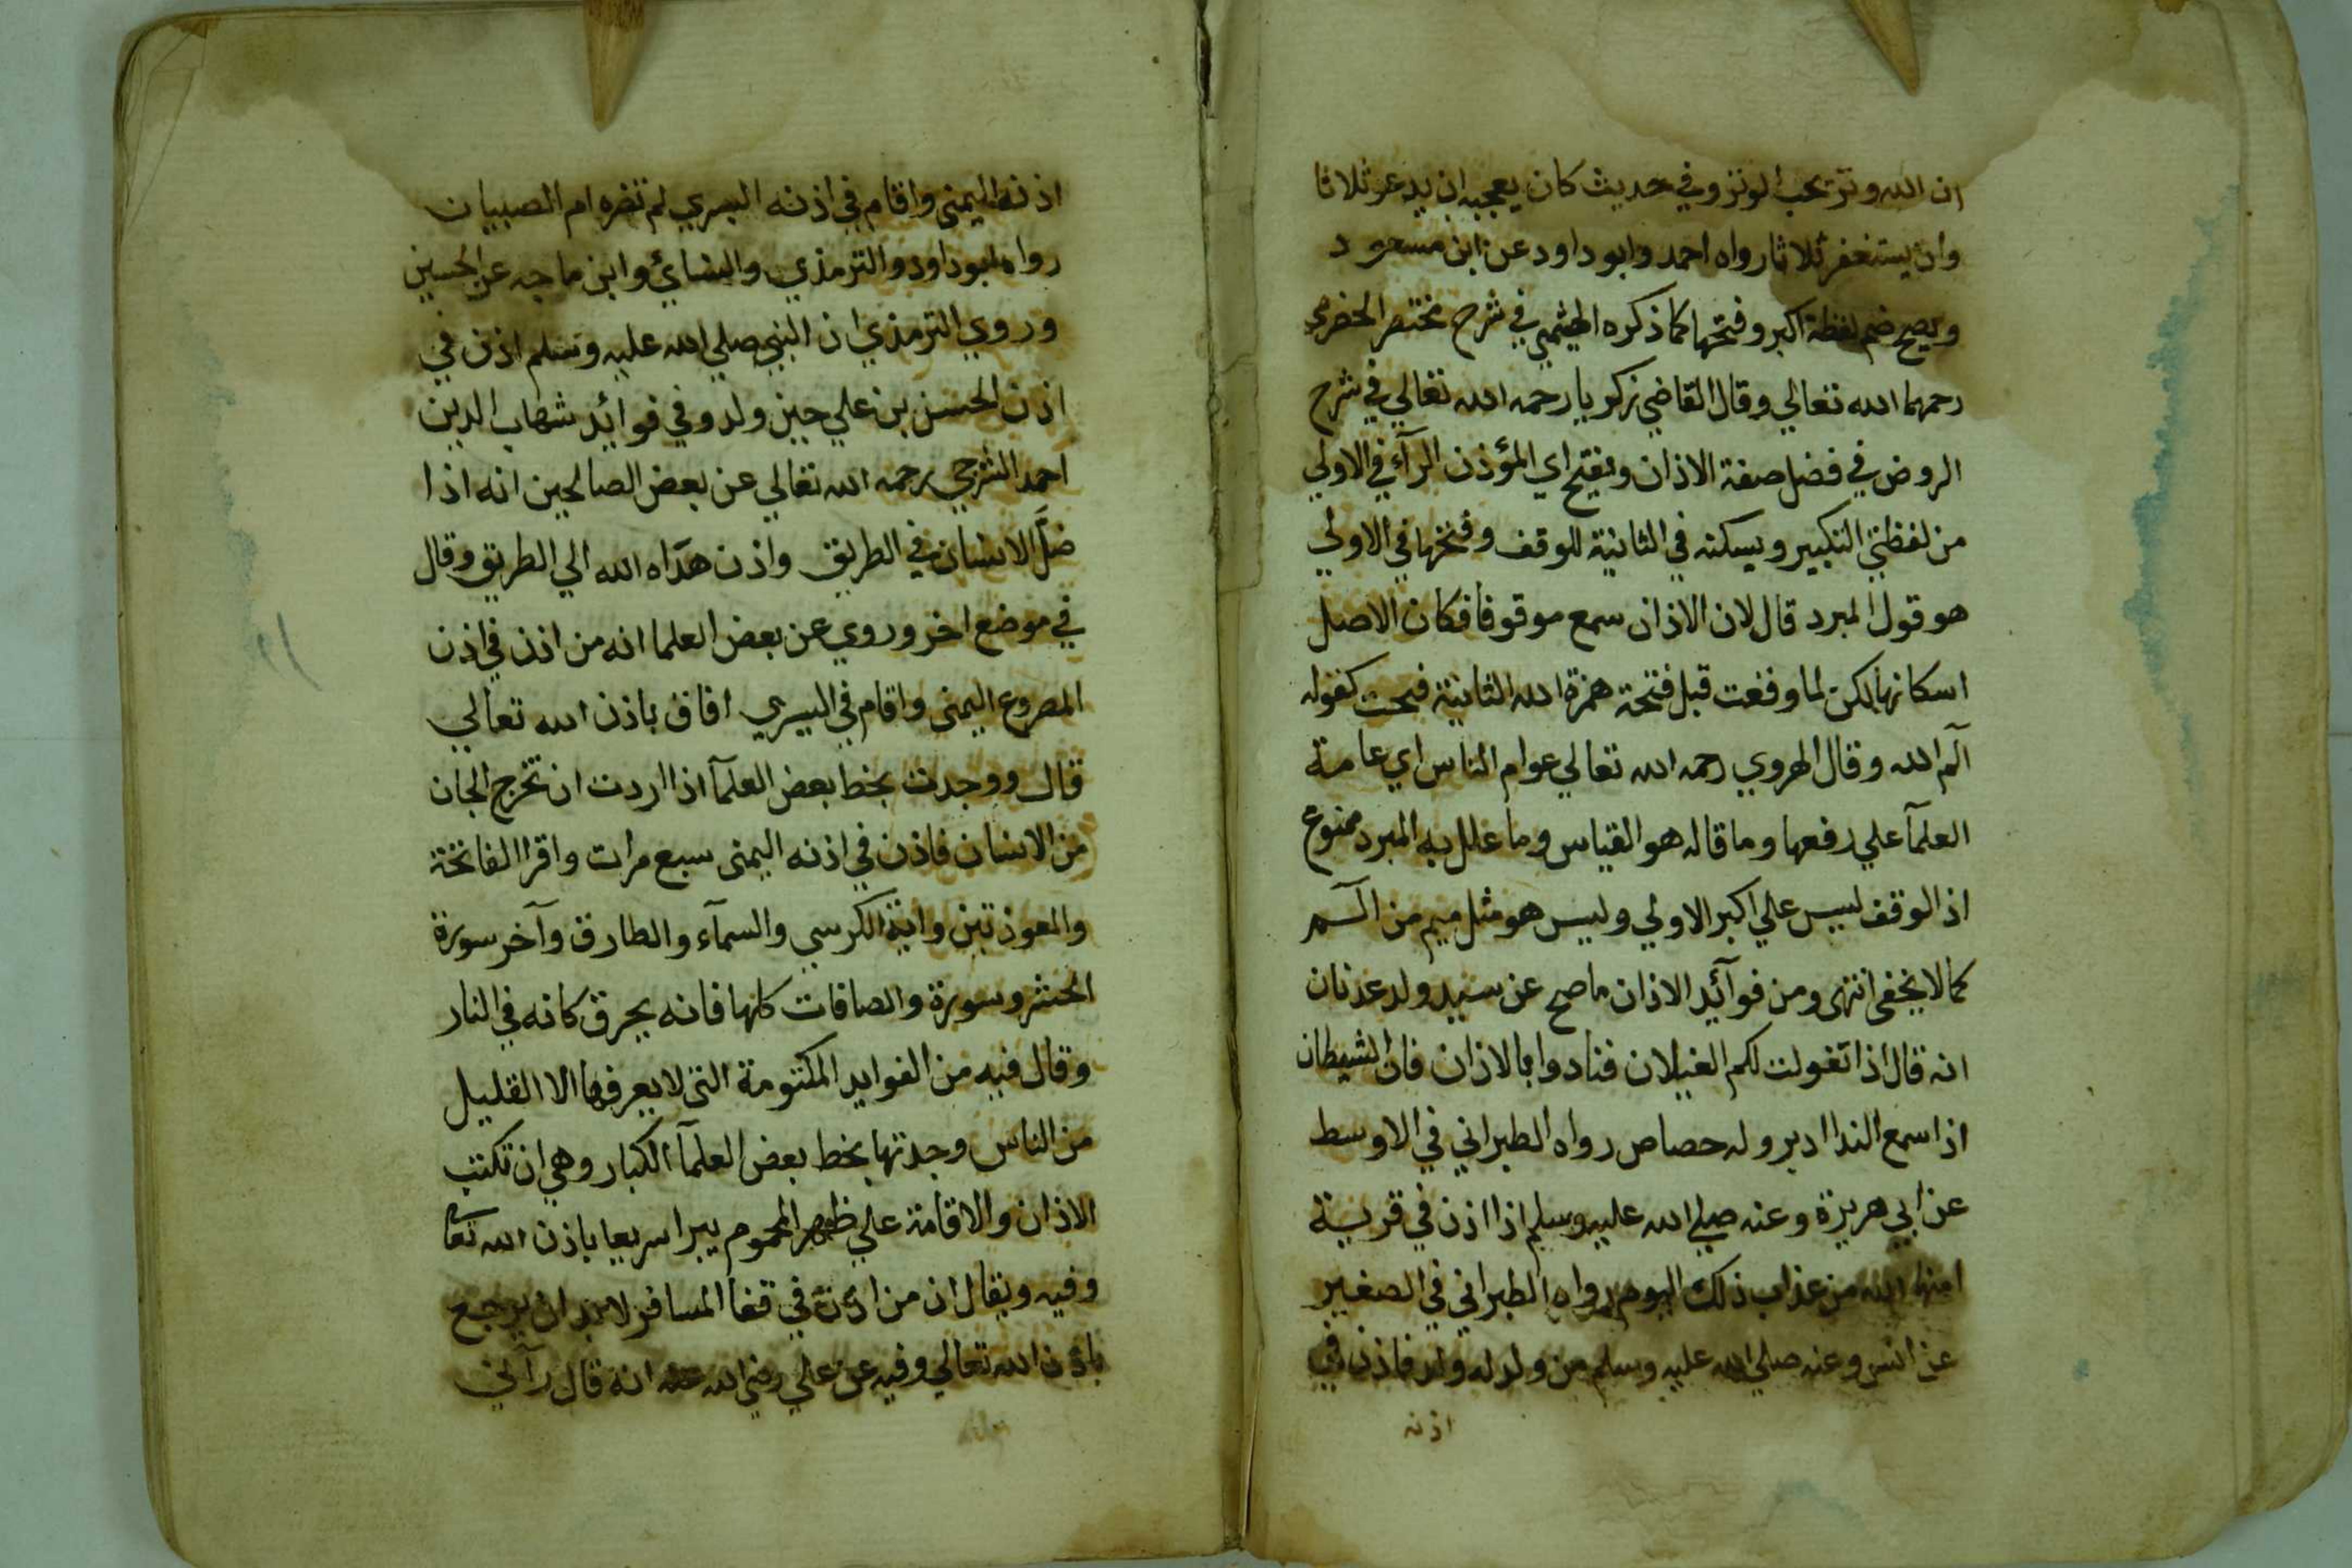 ان الله وتر يحب الوتر وفي حديث كان يعجبه ان يدعو ثلاثا
وان يستغفر ثلاثا رواه احمد وابو داود عن ابن مسعود
ويصح ضم لفظة اكبر وفتحها كما ذكره الهيثمي في شرح مختصر الحضرمي
رحمهما الله تعالي وقال القاضي زكريا رحمه الله تعالي في شرح
الروض في فضل صفة الاذان ويفتح اي المؤذن الرآء في الاولي
من لفظتي التكبير ويسكنه في الثانية للوقف وفتحها في الاولي
هو قول المبرد قال لان الاذان سمع موقوفا فكان الاصل
اسكانها لكن لما وقعت قبل فتحة همزة الله الثانية فتحت كقوله
آلم الله وقال الهروي رحمه الله تعالي عوام الناس اي عامة
العلمآ علي رفعها وما قاله هو القياس وما علل به المبرد ممنوع
اذ الوقف ليس علي اكبر الاولي وليس هو مثل ميم من آلم
كما لا يخفى انتهى ومن فوآئد الاذان ما صح عن سيد ولد عدنان
انه قال اذا تغولت لكم الغيلان فنادوا بالاذان فان الشيطان
اذا سمع الندا ادبر وله حصاص رواه الطبراني في الاوسط
عن ابي هريرة وعنه صلي الله عليه وسلم اذا اذن في قرية
امنها الله من عذاب ذلك اليوم رواه الطبراني في الصغير
عن انس وعنه صلي الله عليه وسلم من ولد له ولد فاذن في
اذنه
اذنه اليمنى واقام في اذنه اليسري لم تضره ام الصبيان
رواه ابو داود والترمذي والنسائي وابن ماجه عن الحسين
وروي الترمذي ان النبي صلي الله عليه وسلم اذن في
اذن الحسن بن علي حين ولد وفي فوائد شهاب الدين
احمد الشرجي رحمه الله تعالي عن بعض الصالحين انه اذا
ضلّ الانسان في الطريق واذن هداه الله الي الطريق وقال
في موضع اخر وروي عن بعض العلما انه من اذن في اذن
المصروع اليمنى واقام في اليسري افاق باذن الله تعالي
قال ووجدت بخط بعض العلمآ اذا اردت ان تخرج الجان
من الانسان فاذن في اذنه اليمنى سبع مرات واقرا الفاتحة
والمعوذتين واية الكرسي والسمآء والطارق وآخر سورة
الحشر وسورة والصافات كلها فانه يحرق كانه في النار
وقال فيه من الفوايد المكتومة التي لا يعرفها الا القليل
من الناس وجدتها بخط بعض العلمآ الكبار وهي ان تكتب
الاذان والاقامة علي ظهر المحموم يبرا سريعا باذن الله تعا
وفيه ويقال ان من اذن في قفا المسافر لا بد ان يرجع
باذن الله تعالي وفيه عن علي رضي الله عنه انه قال رآني